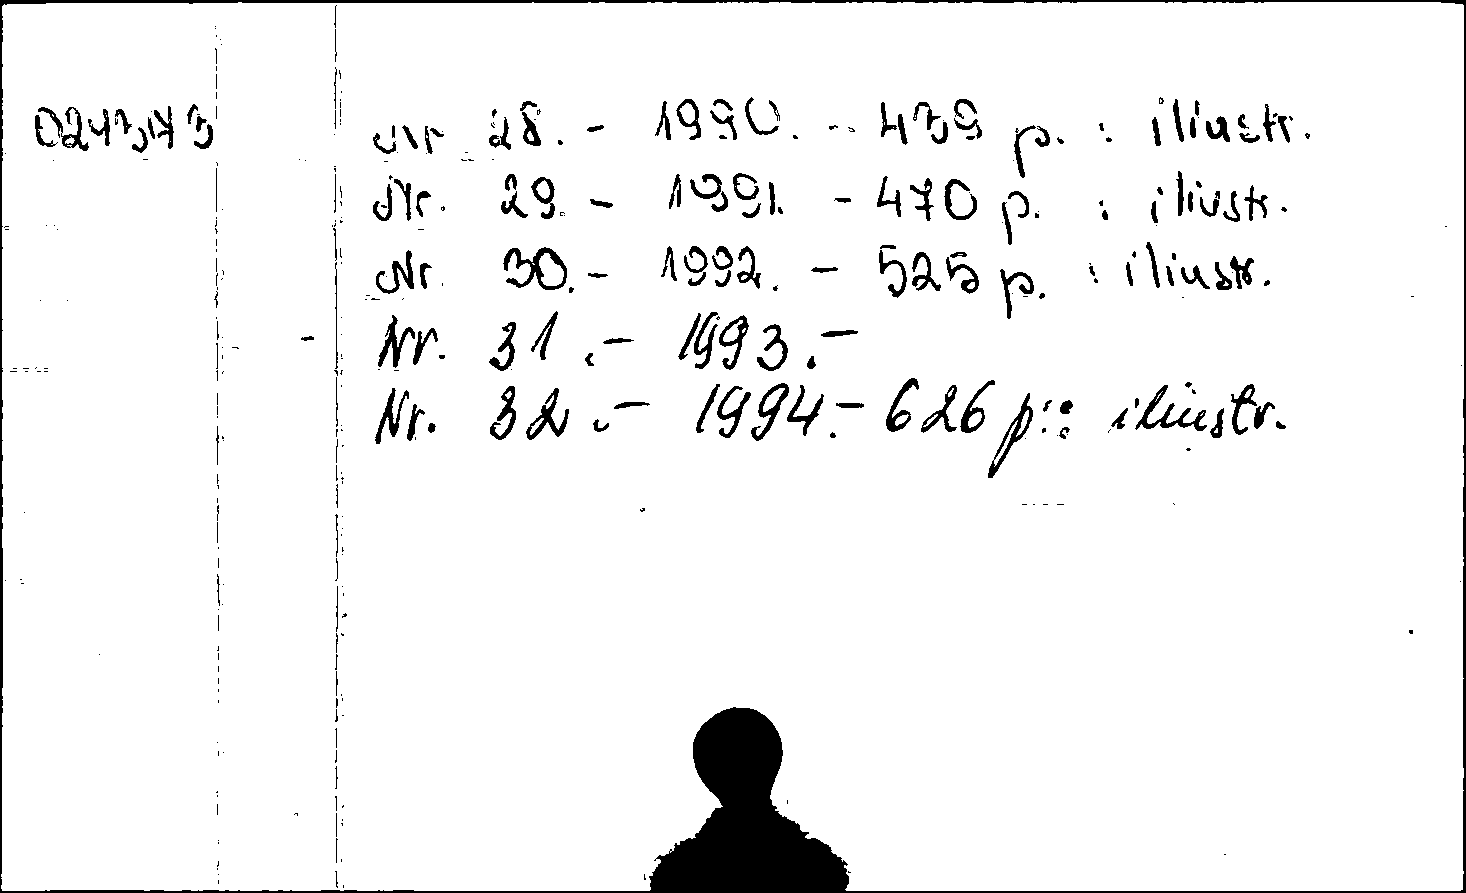 0243173 Nr 28. - 1990. - 439 p. : iliustr.
Nr. 29. - 1991. - 470 p. : iliustr.
Nr. 30. - 1992. - 525 p. : iliustr.
- Nr. 31. - 1993. -
Nr. 32. - 1994. - 626 p.: iliustr.